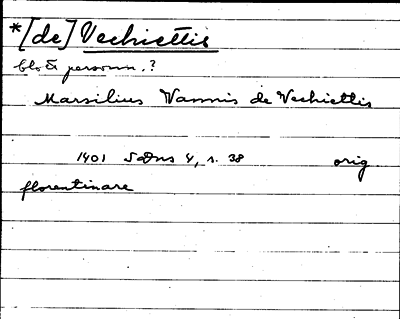 *[de] Vechiettis
blott personn.?
Marsilius Vannis de Vechiettis
1401 SDns 4, s. 38 orig
florentinare